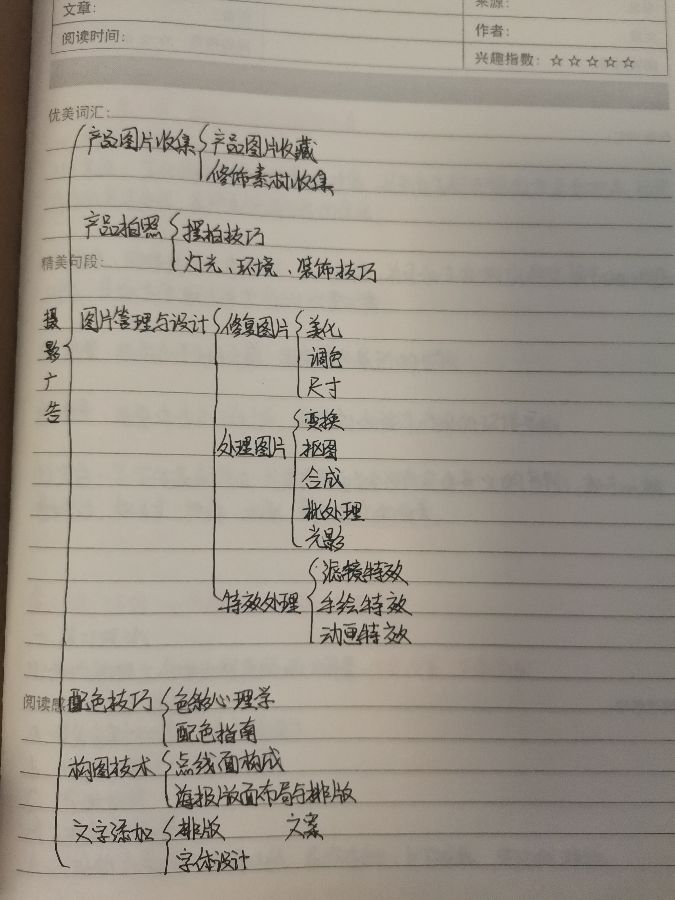 文章：
来源：
阅读时间：
作者：
兴趣指数：☆☆☆☆☆
优美词汇：
产品图片收集
产品图片收藏
修饰素材收集
产品拍照
摆拍技巧
灯光、环境、装饰技巧
精美句段：
摄影广告
图片管理与设计
修复图片
美化
调色
尺寸
处理图片
变换
抠图
合成
批处理
光影
特效处理
滤镜特效
手绘特效
动画特效
阅读感
配色技巧
色彩心理学
配色指南
构图技术
点线面构成
海报版面布局与排版
文字添加
排版 文案
字体设计